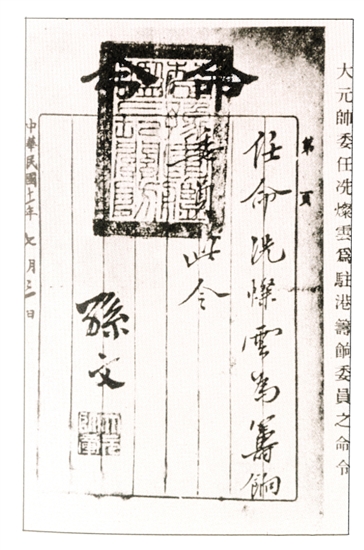 大元帥委任洗燦雲爲駐港籌餉委員之命令
命令
第 頁
任命洗燦雲為籌餉
委員此令
孫文
大元帥章
中華民國十二年七月三日